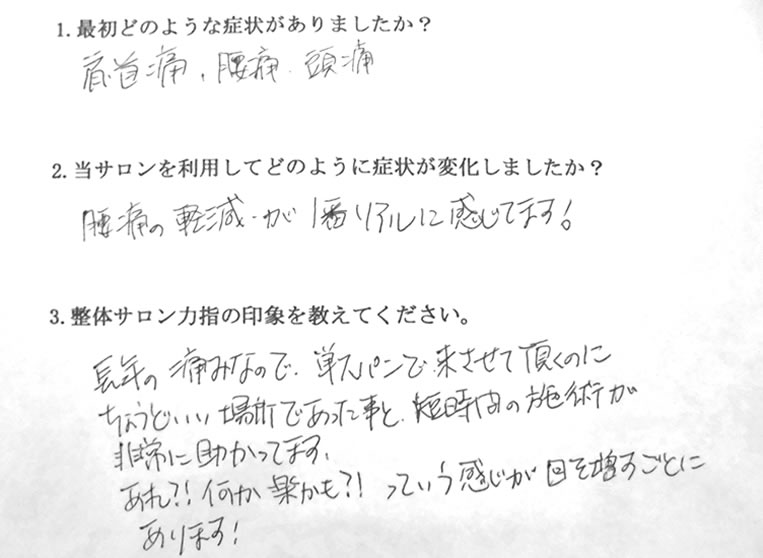 1.最初どのような症状がありましたか？
肩首痛、腰痛、頭痛
2.当サロンを利用してどのように症状が変化しましたか？
腰痛の軽減が1番リアルに感じてます!
3.整体サロン力指の印象を教えてください。
長年の痛みなので、単スパンで来させて頂くのに
ちょうどいい場所であった事と、短時間の施術が
非常に助かってます、
あれ?!何か楽かも?!っていう感じが回を増すごとに
あります!